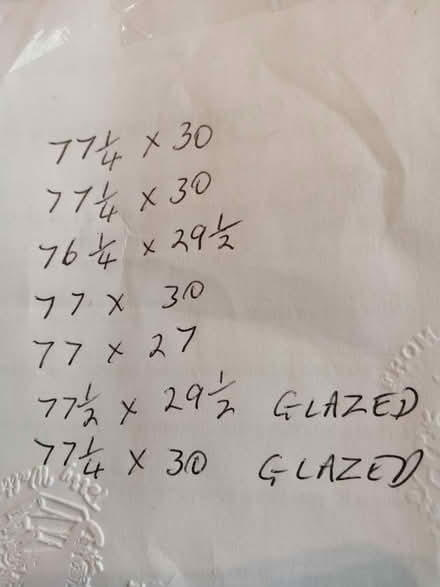 77 1/4 x 30
77 1/4 x 30
76 1/4 x 29 1/2
77 x 30
77 x 27
77 1/2 x 29 1/2 GLAZED
77 1/4 x 30 GLAZED